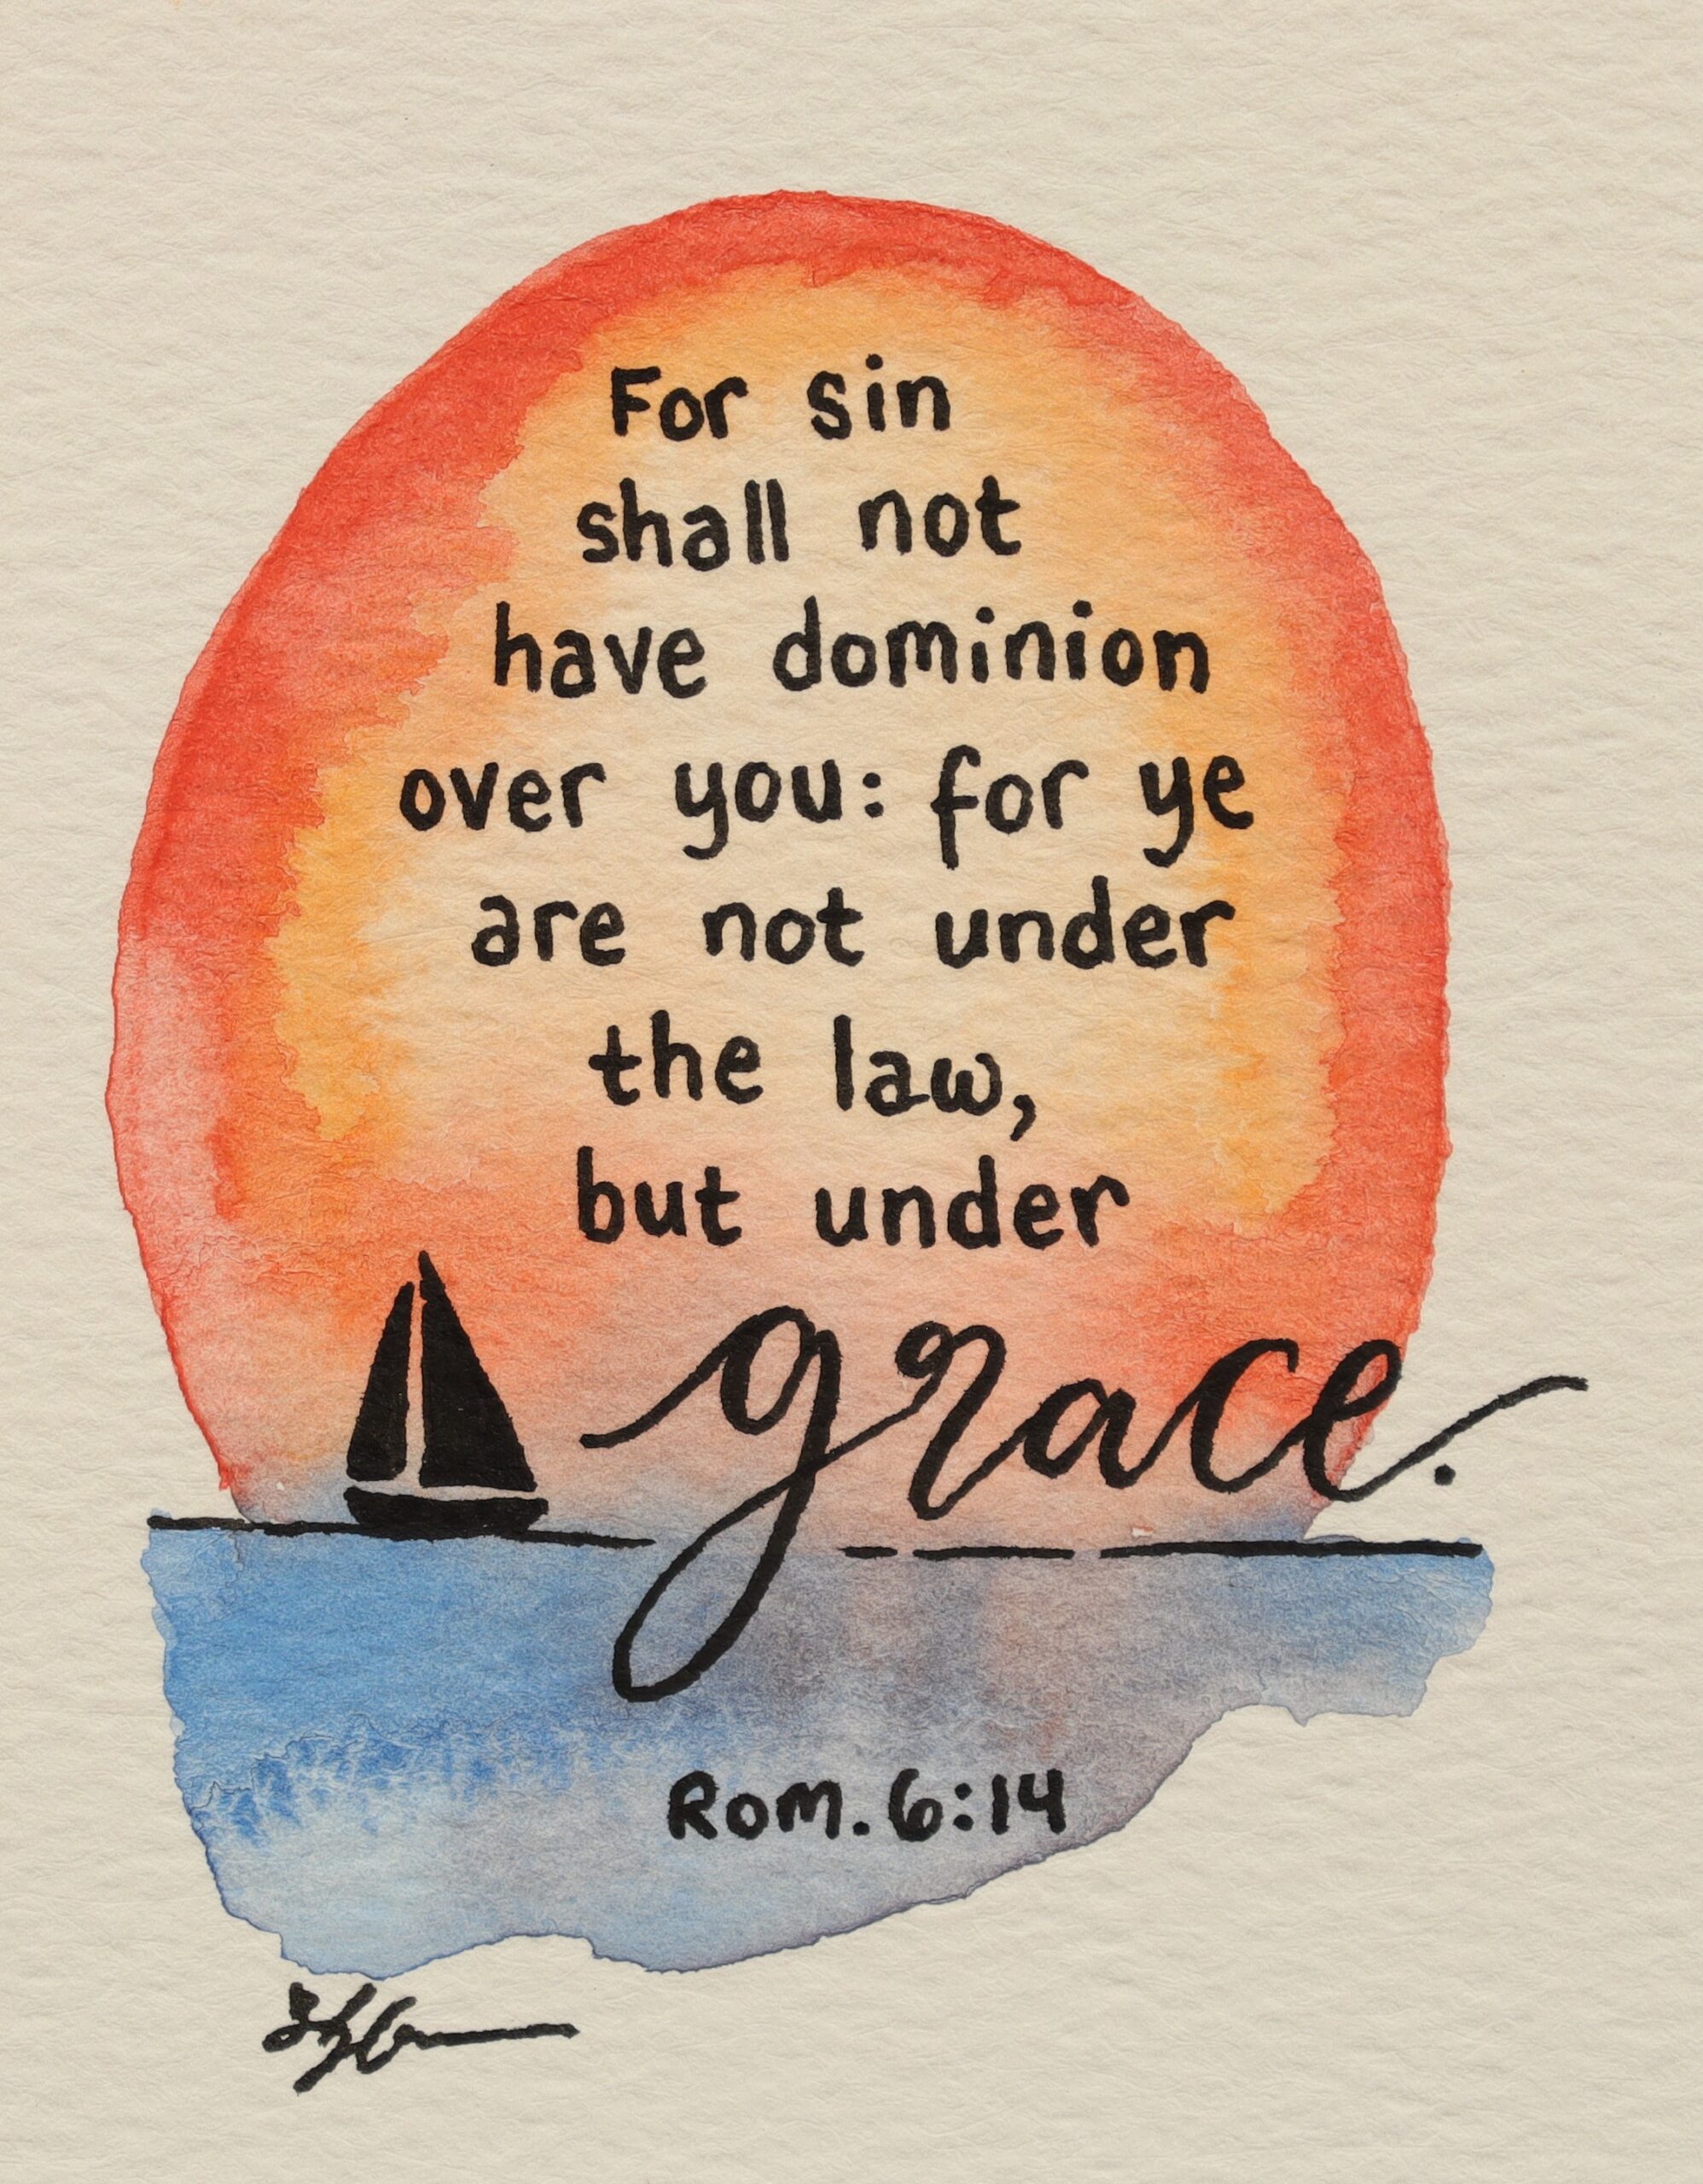 For sin
shall not
have dominion
over you: for ye
are not under
the law,
but under
grace.
Rom. 6:14